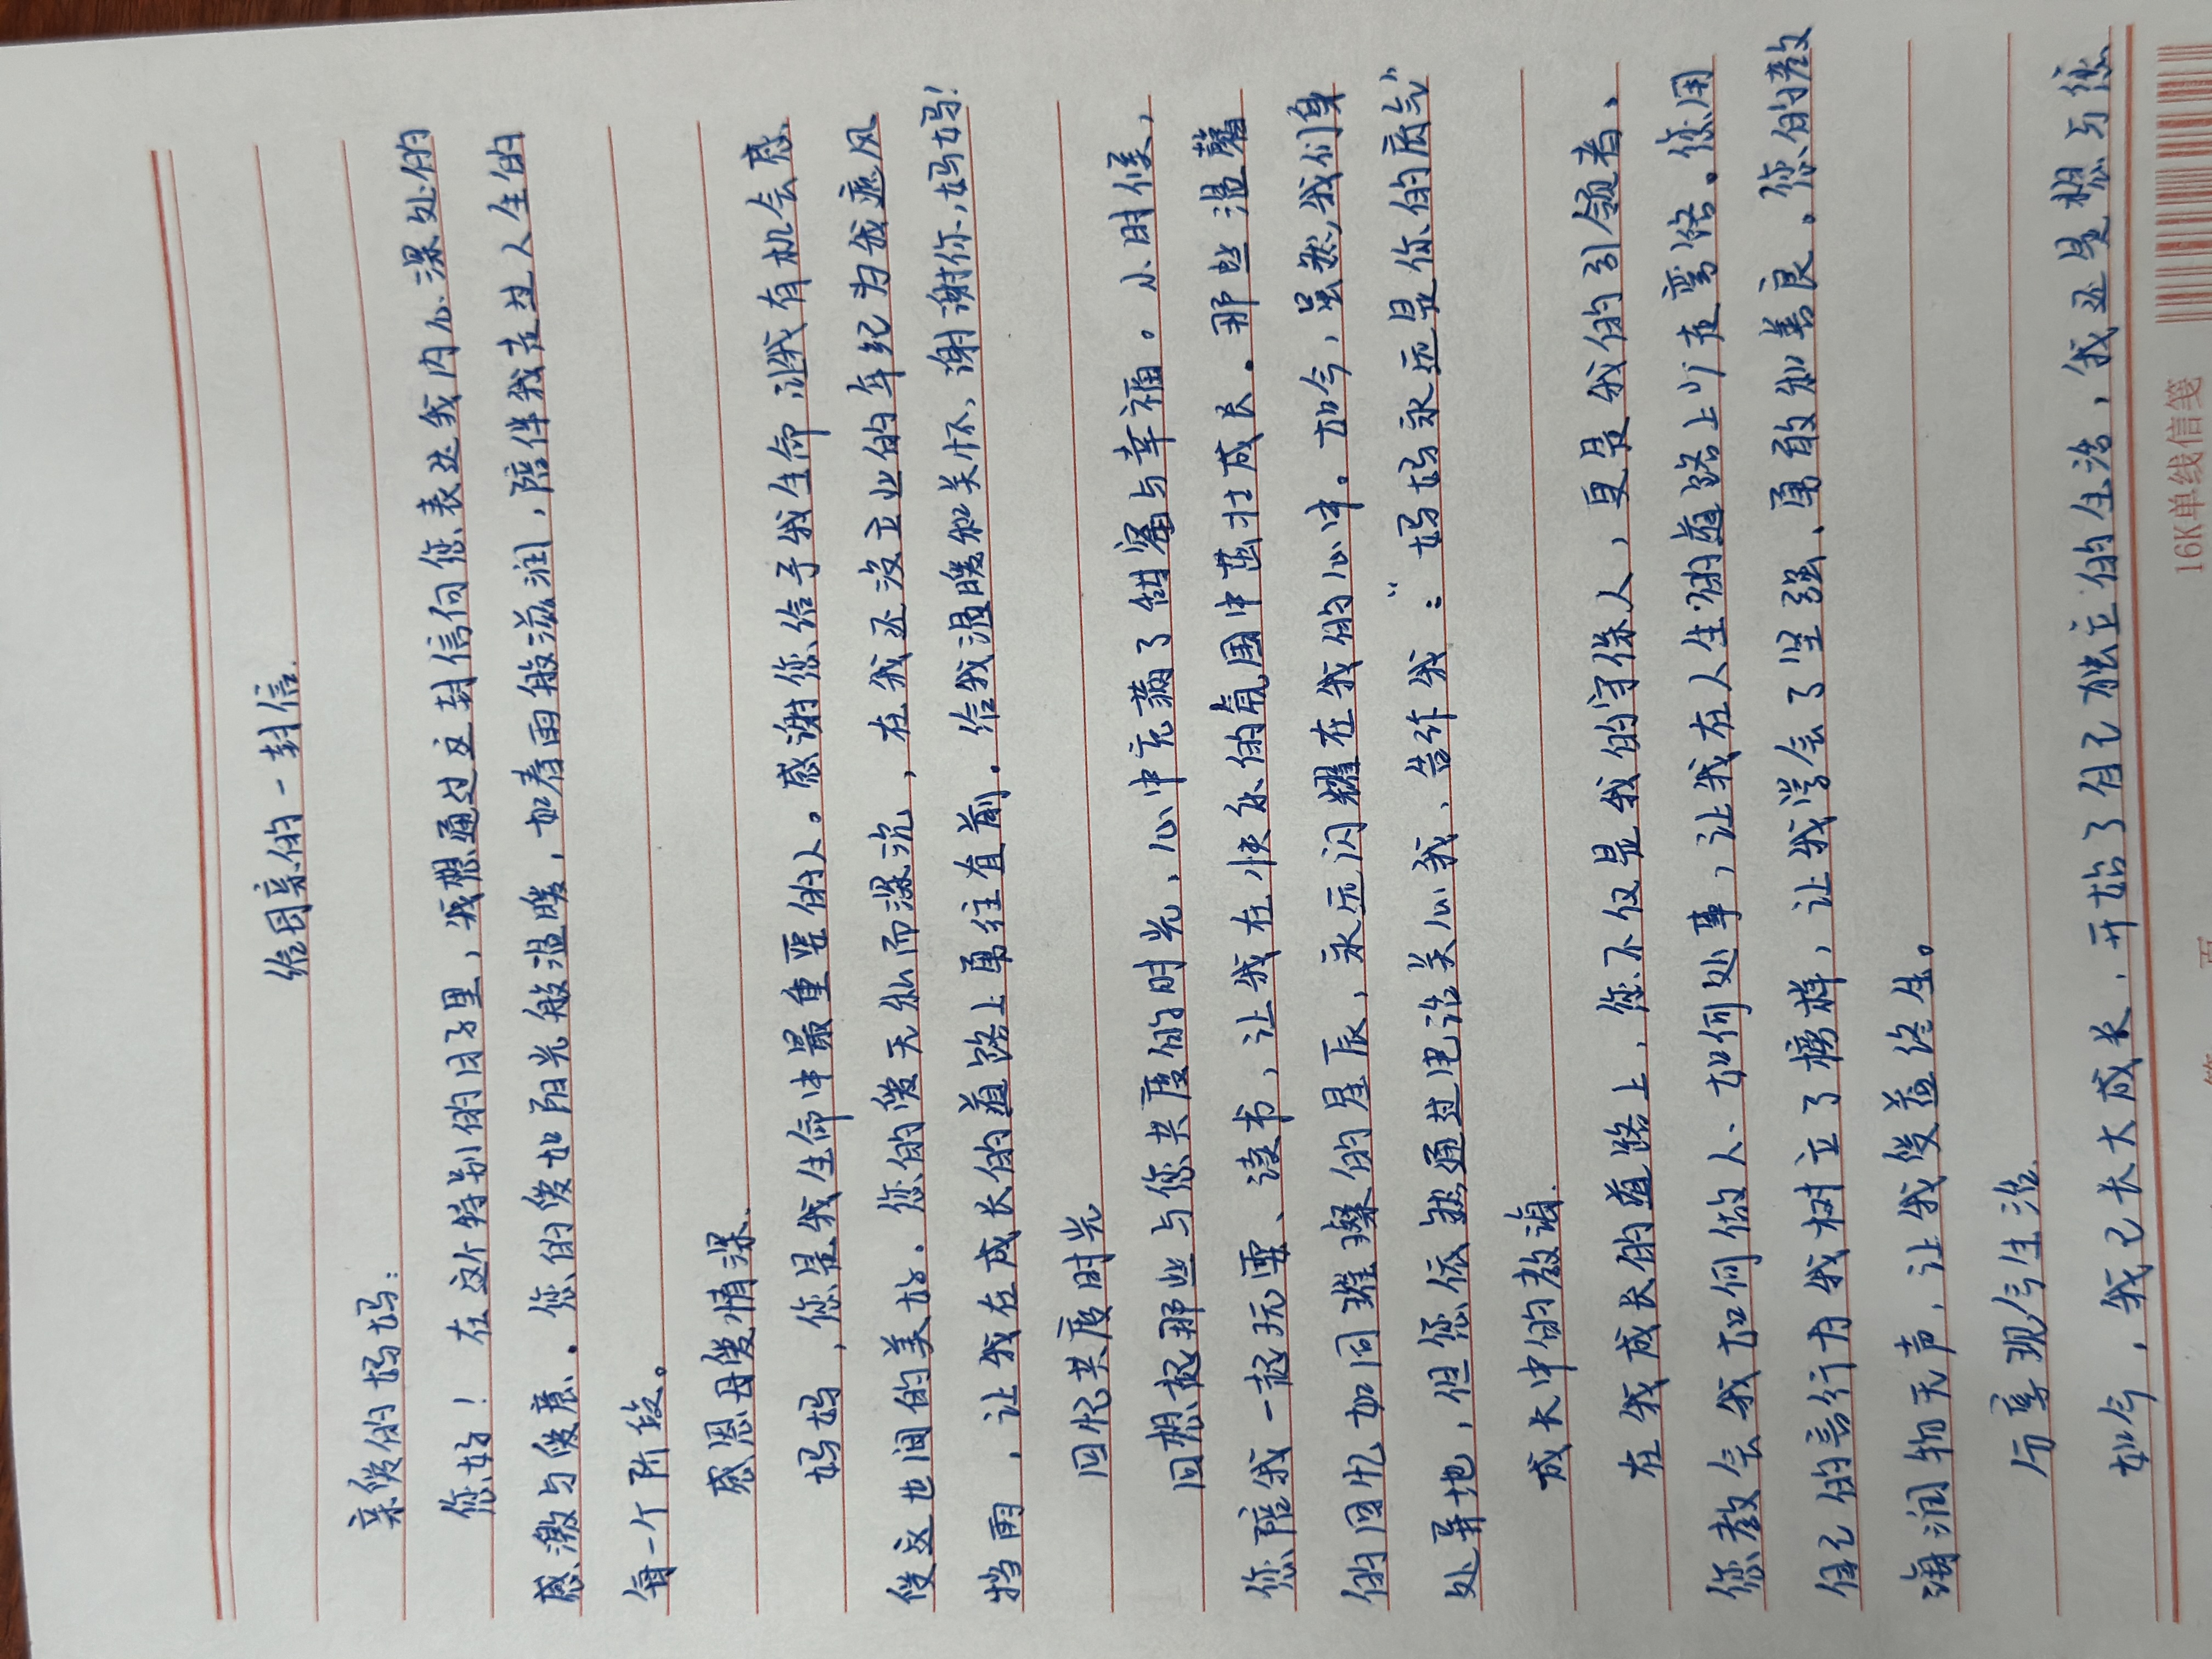 给母亲的一封信.
亲爱的妈妈：
您好！在这个特别的日子里，我想通过这封信向您表达我内心深处的
感激与爱意.您的爱如阳光般温暖，如春雨般滋润，陪伴我走过人生的
每一个阶段。
感恩母爱情深.
妈妈，您是我生命中最重要的人。感谢您给予我生命,让我有机会感
受这世间的美好.您的爱无私而深沉，在我还没立业的年纪为我遮风
挡雨，让我在成长的道路上勇往直前.给我温暖和关怀,谢谢你,妈妈!
回忆共度时光
回想起那些与您共度的时光,心中充满了甜蜜与幸福。小时候,
您陪我一起玩耍、读书,让我在快乐的氛围中茁壮成长.那些温馨
的回忆如同璀璨的星辰,永远闪耀在我的心中。如今,虽然,我们身
处异地,但您依然通过电话关心我、告诉我:“妈妈永远是你的底气”
成长中的教诲.
在我成长的道路上,您不仅是我的守候人,更是我的引领者,
您教会我如何做人、如何处事,让我在人生的道路上少走弯路。您用
自己的言行为我树立了榜样,让我学会了坚强、勇敢和善良.您的教
诲润物无声,让我受益终生。
分享现今生活.
如今,我已长大成长,开始了自己独立的生活,我还是想与您
16K单线信笺